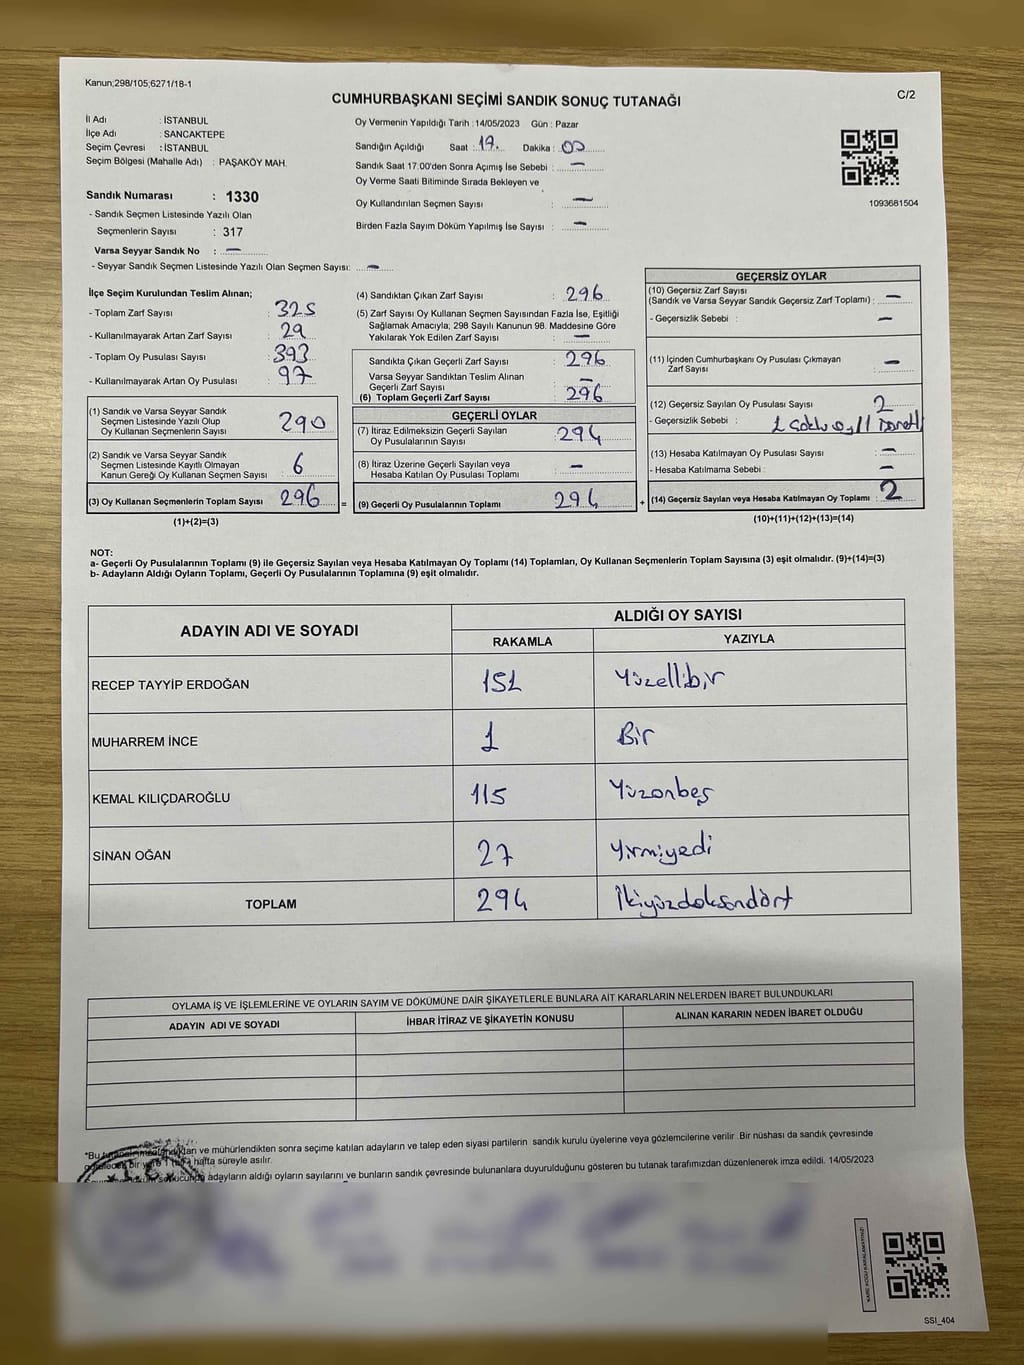 Kanun;298/105;6271/18-1
C/2
CUMHURBAŞKANI SEÇİMİ SANDIK SONUÇ TUTANAĞI
İl Adı : İSTANBUL
İlçe Adı : SANCAKTEPE
Seçim Çevresi : İSTANBUL
Seçim Bölgesi (Mahalle Adı) : PAŞAKÖY MAH.
Sandık Numarası : 1330
- Sandık Seçmen Listesinde Yazılı Olan
Seçmenlerin Sayısı : 317
Varsa Seyyar Sandık No : —
- Seyyar Sandık Seçmen Listesinde Yazılı Olan Seçmen Sayısı: —
Oy Vermenin Yapıldığı Tarih : 14/05/2023 Gün : Pazar
Sandığın Açıldığı Saat : 17. Dakika : 00
Sandık Saat 17.00'den Sonra Açımış İse Sebebi : —
Oy Verme Saati Bitiminde Sırada Bekleyen ve
Oy Kullandırılan Seçmen Sayısı : —
Birden Fazla Sayım Döküm Yapılmış İse Sayısı : —
1093681504
İlçe Seçim Kurulundan Teslim Alınan;
- Toplam Zarf Sayısı : 325
- Kullanılmayarak Artan Zarf Sayısı : 29
- Toplam Oy Pusulası Sayısı : 393
- Kullanılmayarak Artan Oy Pusulası : 97
(1) Sandık ve Varsa Seyyar Sandık
Seçmen Listesinde Yazılı Olup
Oy Kullanan Seçmenlerin Sayısı : 290
(2) Sandık ve Varsa Seyyar Sandık
Seçmen Listesinde Kayıtlı Olmayan
Kanun Gereği Oy Kullanan Seçmen Sayısı : 6
(3) Oy Kullanan Seçmenlerin Toplam Sayısı : 296 =
(1)+(2)=(3)
(4) Sandıktan Çıkan Zarf Sayısı : 296
(5) Zarf Sayısı Oy Kullanan Seçmen Sayısından Fazla İse, Eşitliği
Sağlamak Amacıyla; 298 Sayılı Kanunun 98. Maddesine Göre
Yakılarak Yok Edilen Zarf Sayısı : —
Sandıkta Çıkan Geçerli Zarf Sayısı : 296
Varsa Seyyar Sandıktan Teslim Alınan
Geçerli Zarf Sayısı : —
(6) Toplam Geçerli Zarf Sayısı : 296
GEÇERLİ OYLAR
(7) İtiraz Edilmeksizin Geçerli Sayılan
Oy Pusulalarının Sayısı : 294
(8) İtiraz Üzerine Geçerli Sayılan veya
Hesaba Katılan Oy Pusulası Toplamı : —
(9) Geçerli Oy Pusulalarının Toplamı : 294 +
GEÇERSİZ OYLAR
(10) Geçersiz Zarf Sayısı
(Sandık ve Varsa Seyyar Sandık Geçersiz Zarf Toplamı) : —
- Geçersizlik Sebebi : —
(11) İçinden Cumhurbaşkanı Oy Pusulası Çıkmayan
Zarf Sayısı : —
(12) Geçersiz Sayılan Oy Pusulası Sayısı : 2
- Geçersizlik Sebebi :
(13) Hesaba Katılmayan Oy Pusulası Sayısı : —
- Hesaba Katılmama Sebebi : —
(14) Geçersiz Sayılan veya Hesaba Katılmayan Oy Toplamı : 2
(10)+(11)+(12)+(13)=(14)
NOT:
a- Geçerli Oy Pusulalarının Toplamı (9) ile Geçersiz Sayılan veya Hesaba Katılmayan Oy Toplamı (14) Toplamları, Oy Kullanan Seçmenlerin Toplam Sayısına (3) eşit olmalıdır. (9)+(14)=(3)
b- Adayların Aldığı Oyların Toplamı, Geçerli Oy Pusulalarının Toplamına (9) eşit olmalıdır.
ADAYIN ADI VE SOYADI ALDIĞI OY SAYISI
RAKAMLA YAZIYLA
RECEP TAYYİP ERDOĞAN 151 Yüzellibir
MUHARREM İNCE 1 Bir
KEMAL KILIÇDAROĞLU 115 Yüzonbeş
SİNAN OĞAN 27 Yirmiyedi
TOPLAM 294 İkiyüzdoksandört
OYLAMA İŞ VE İŞLEMLERİNE VE OYLARIN SAYIM VE DÖKÜMÜNE DAİR ŞİKAYETLERLE BUNLARA AİT KARARLARIN NELERDEN İBARET BULUNDUKLARI
ADAYIN ADI VE SOYADI İHBAR İTİRAZ VE ŞİKAYETİN KONUSU ALINAN KARARIN NEDEN İBARET OLDUĞU
*Bu ve mühürlendikten sonra seçime katılan adayların ve talep eden siyasi partilerin sandık kurulu üyelerine veya gözlemcilerine verilir. Bir nüshası da sandık çevresinde
hafta süreyle asılır.
adayların aldığı oyların sayılarını ve bunların sandık çevresinde bulunanlara duyurulduğunu gösteren bu tutanak tarafımızdan düzenlenerek imza edildi. 14/05/2023
SSI_404